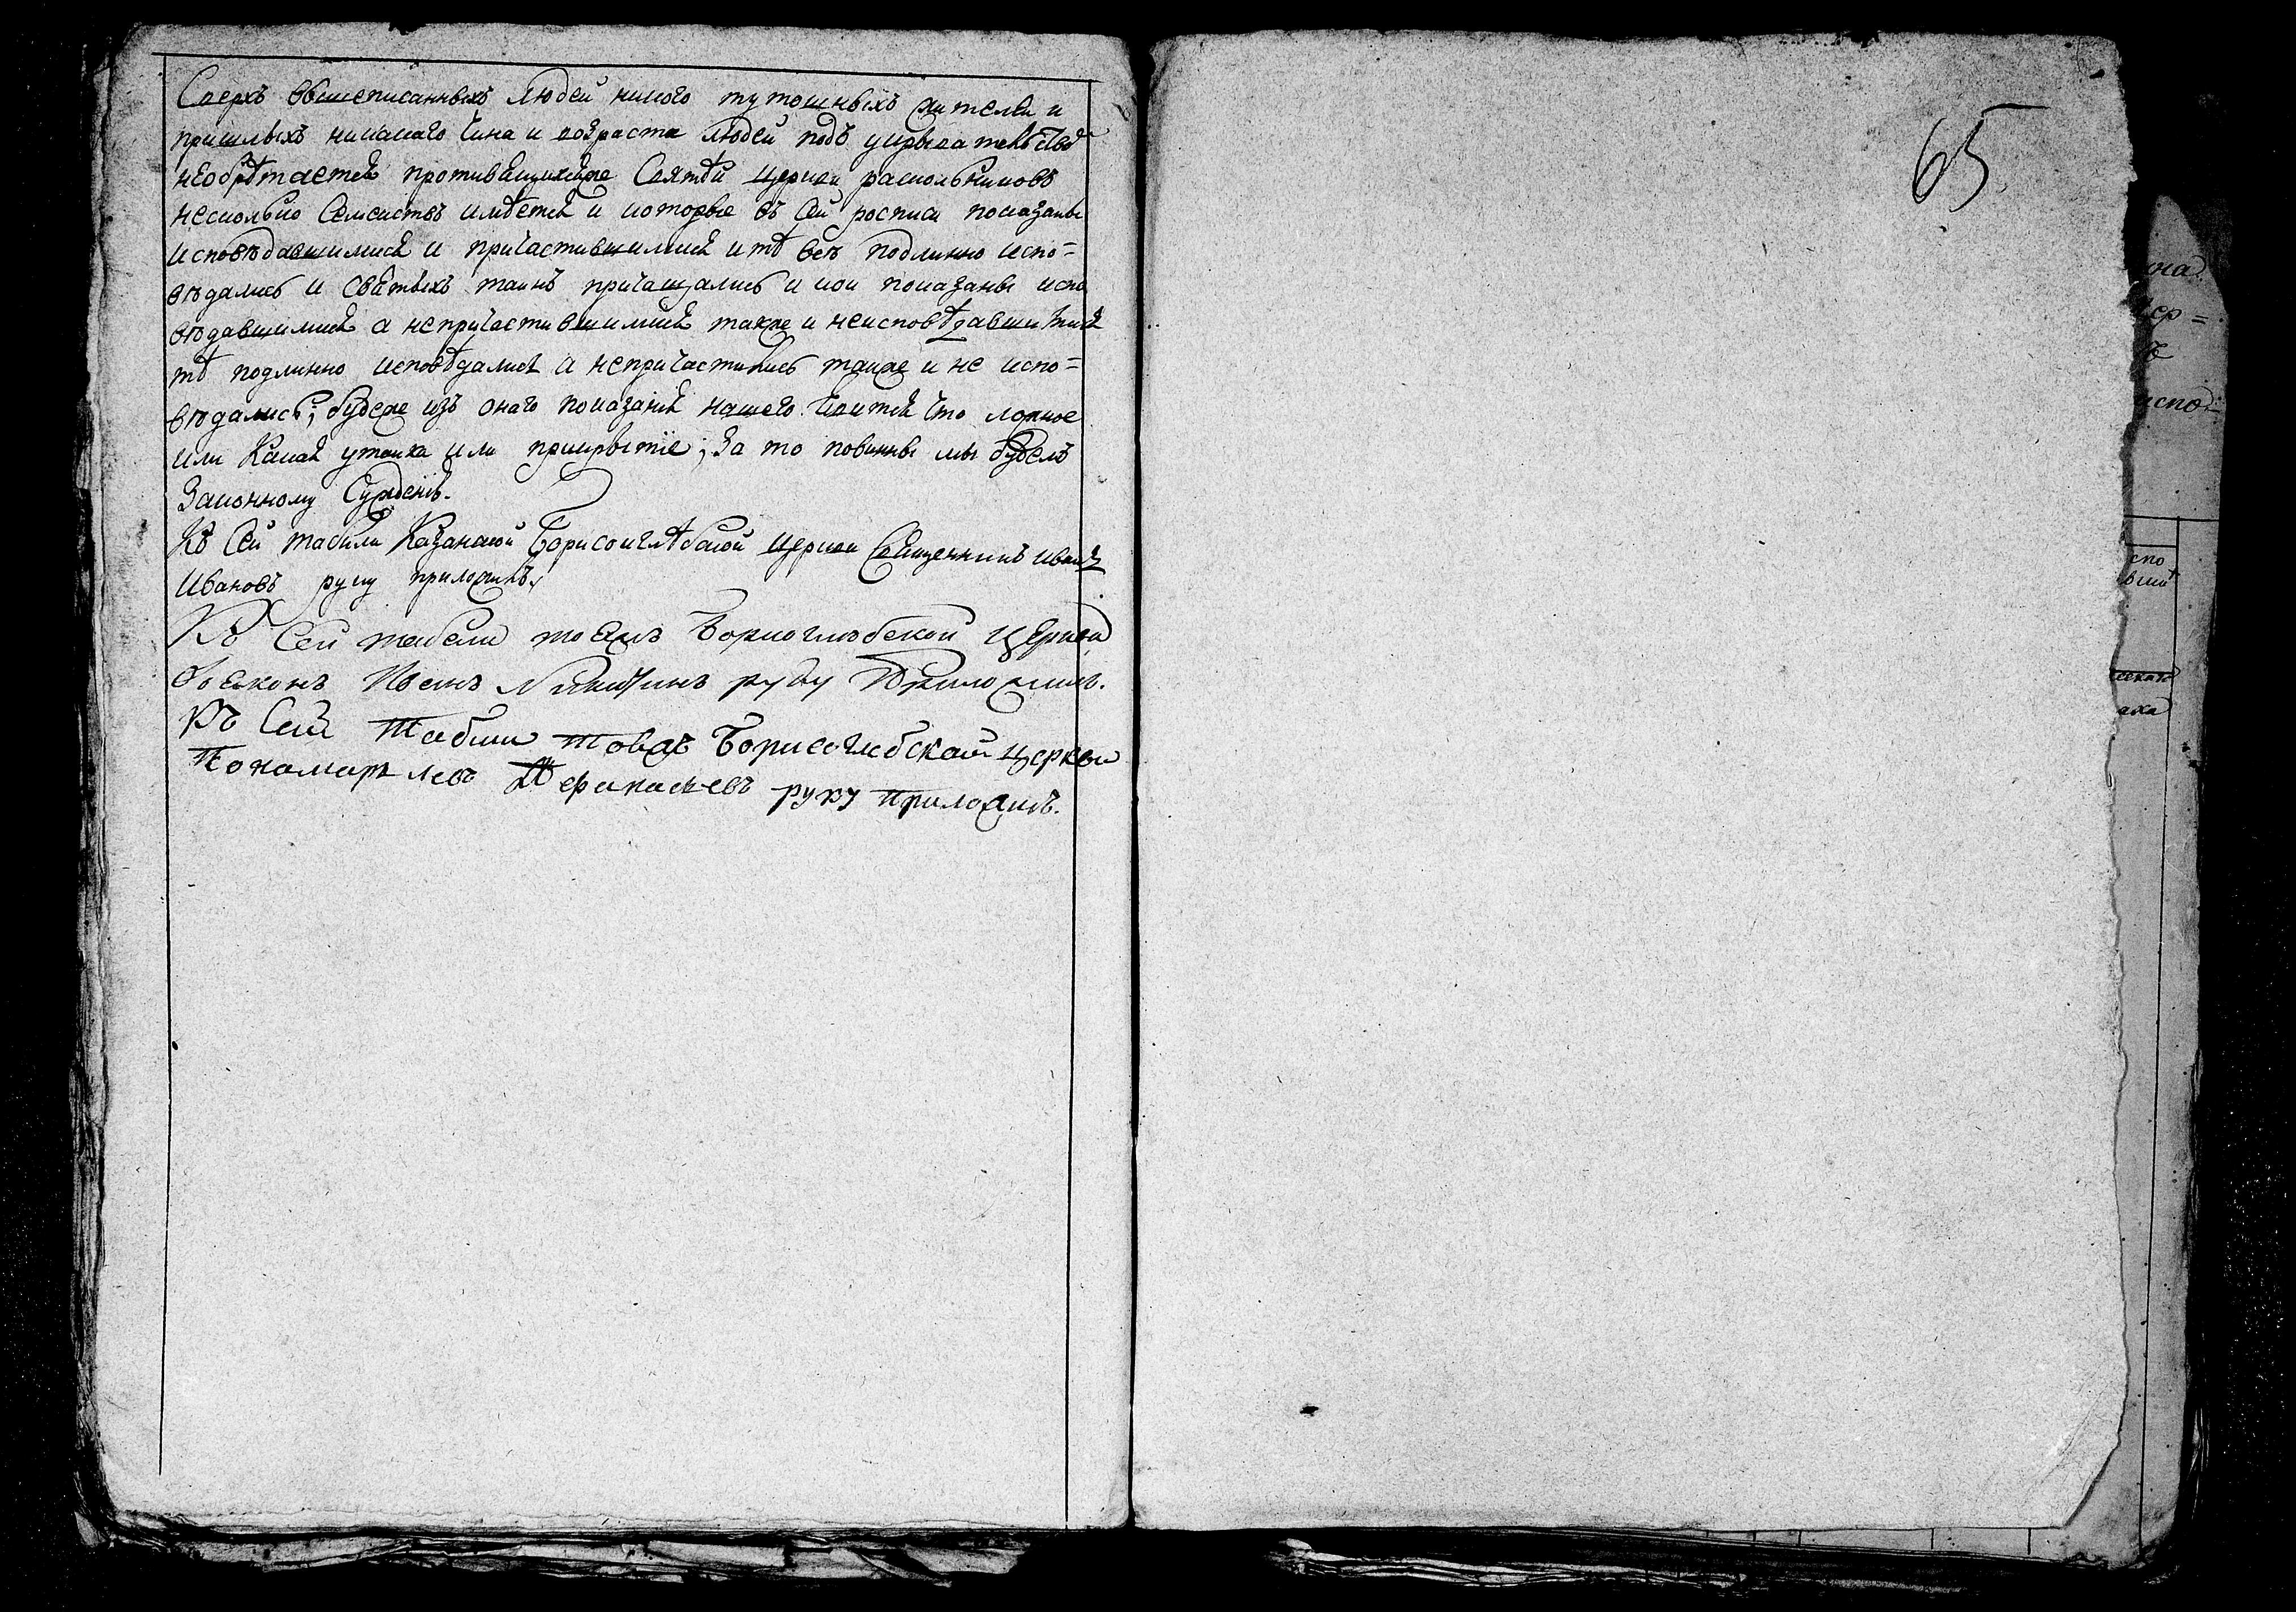 Сверхъ вышеписанныхъ людей никого тутошныхъ жителей и
пришлыхъ никакаго чина и возраста людей подъ укрывательствомъ
необрѣтается противящихсяже Святѣй Церкви раскольниковъ
несколько Семействъ имѣется и которые въ сей росписи показаны
исповѣдавшимися и причастившимися и тѣ всѣ подлинно испо=
вѣдались и святыхъ таинъ причащались и кои показаны испо
вѣдавшимися а непричастившимися также и неисповѣдавшимися
тѣ подлинно исповѣдались а непричастились также и не испо=
вѣдались; будеже изъ онаго показанія нашего явится что ложное
или Какая утайка или прикрытіе; За то повинны мы будемъ
Законному Сужденію.
Къ Сей табели Казанской Борисоглѣбской церкви Священникъ Иванъ
Ивановъ руку приложилъ
Къ Сей табели тоежъ Борисоглебской церкви
дьяконъ Иванъ Никитинъ руку приложилъ.
Къ Сей табели тоежъ Борисоглебской церкви
Пономарь левъ Афанасьевъ руку приложилъ.
65
на
ер=
ъ
испо=
спо
вши
аха